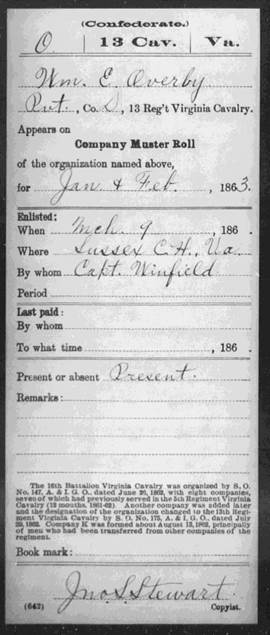 (Confederate.)
O | 13 Cav. | Va.
Wm. E. Overby
Pvt., Co. D, 13 Reg't Virginia Cavalry.
Appears on
Company Muster Roll
of the organization named above,
for Jan & Feb., 1863.
Enlisted:
When Mch. 9, 186 .
Where Sussex C.H., Va.
By whom Capt. Winfield
Period
Last paid:
By whom
To what time , 186 .
Present or absent Present.
Remarks:
The 16th Battalion Virginia Cavalry was organized by S. O.
No. 147, A. & I. G. O., dated June 1862, with eight companies,
seven of which had previously served in the 5th Regiment Virginia
Cavalry (12 months, 1861-62) Another company was added later
and the designation of the organization changed to the 13th Regi-
ment Virginia Cavalry by S. O. No. 175, A. & I. G. O., dated July
1862. Company K was formed about August 1862, principally
of men who had been transferred from other companies of the
regiment.
Book mark:
Jno S Stewart
(642) Copyist.